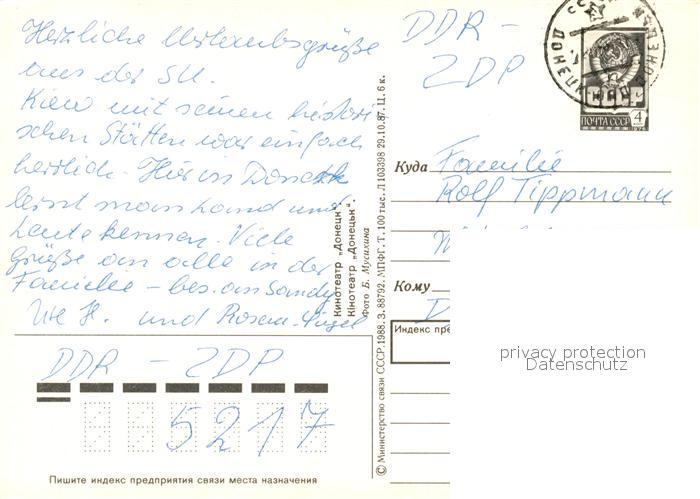 Herzliche Urlaubsgrüße
aus der SU.
Kiew mit seinen histori
schen Stätten war einfach
herrlich. Hier in Donezk
lernt man Land und
Leute kennen. Viele
Grüße an alle in der
Familie – bes. an Sandy
Uwe H. und Rosem.
DDR – ZDP
5217
Пишите индекс предприятия связи места назначения
Кинотеатр „Донецк“.
Кінотеатр „Донецьк“.
Фото Б. Мусихина
© Министерство связи СССР. 1988. З. 88792. МПФГ. Т. 100 тыс. Л 103398 29.10.87. Ц. 6 к.
DDR –
ZDP
ПОЧТА СССР
4
1976
ДОНЕЦК
Куда Familie
Rolf Tippmann
Кому
Индекс пре
privacy protection
Datenschutz